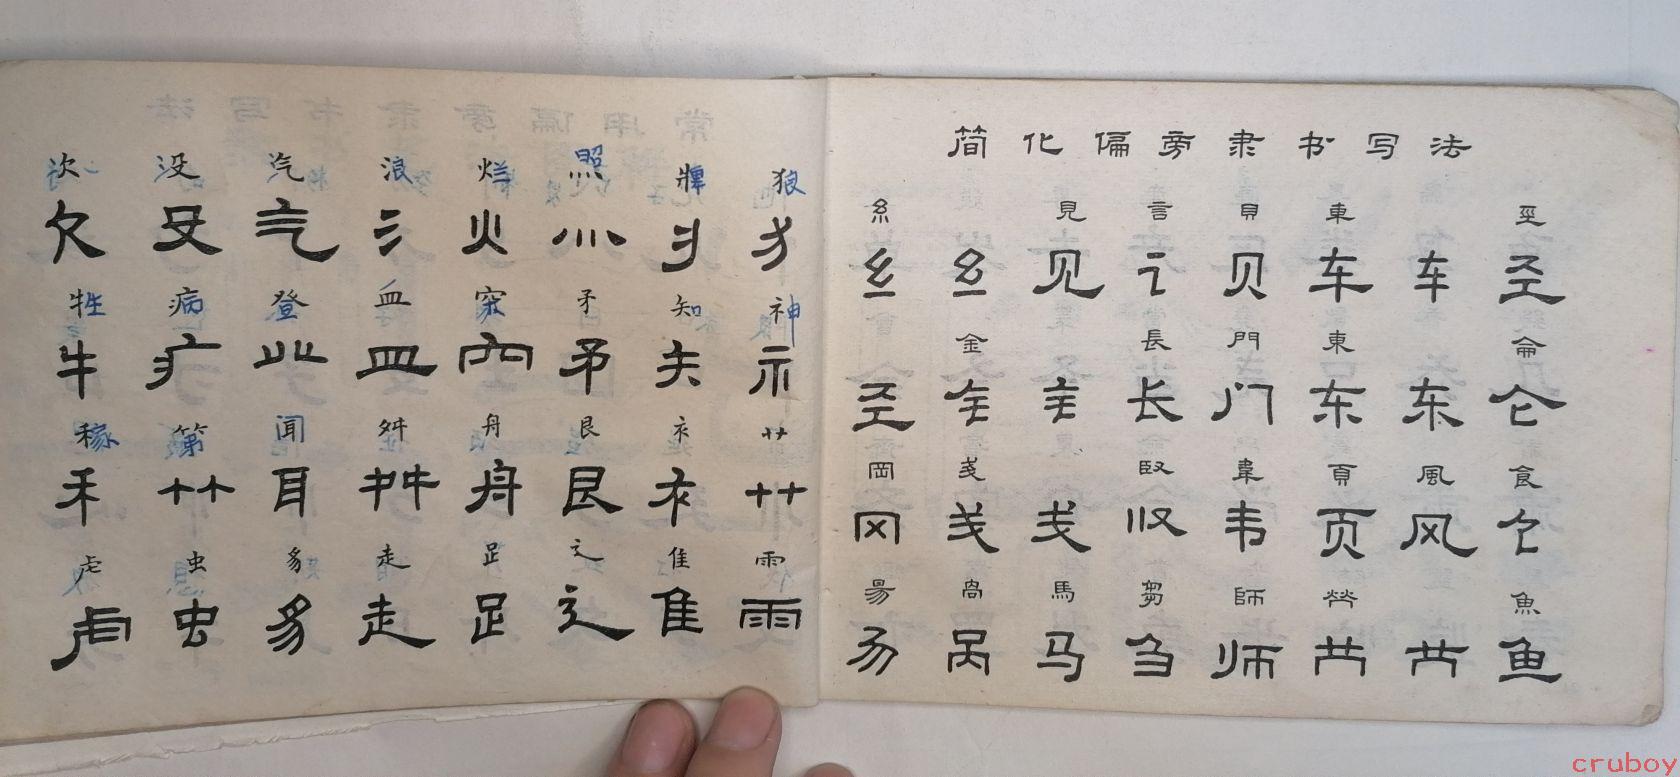 简化偏旁隶书写法
糸 見 言 貝 車 巠
纟 纟 见 讠 贝 车 车 𢀖
金 長 門 東 侖
𢀖 钅 钅 长 门 东 东 仑
岡 戔 臤 韋 頁 風 食
冈 戋 戋 収 韦 页 风 饣
昜 咼 馬 芻 師 魚
呙 马 刍 师 鱼
次 没 汽 浪 烂 照 牌 狼
欠 殳 气 氵 火 灬 丬 犭
牲 病 登 血 家 矛 知 神
牛 疒 癶 皿 穴 矛 矢 示
稼 第 闻 舛 舟 艮 衣 艹
禾 竹 耳 舟 艮 衣 艹
虍 虫 豸 走 足 辶 隹 雨
虍 虫 豸 走 足 辶 隹 雨
cruboy